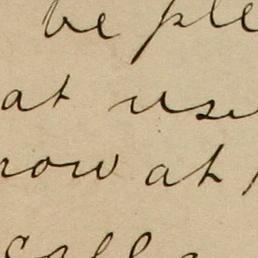 be ple
at use
now at